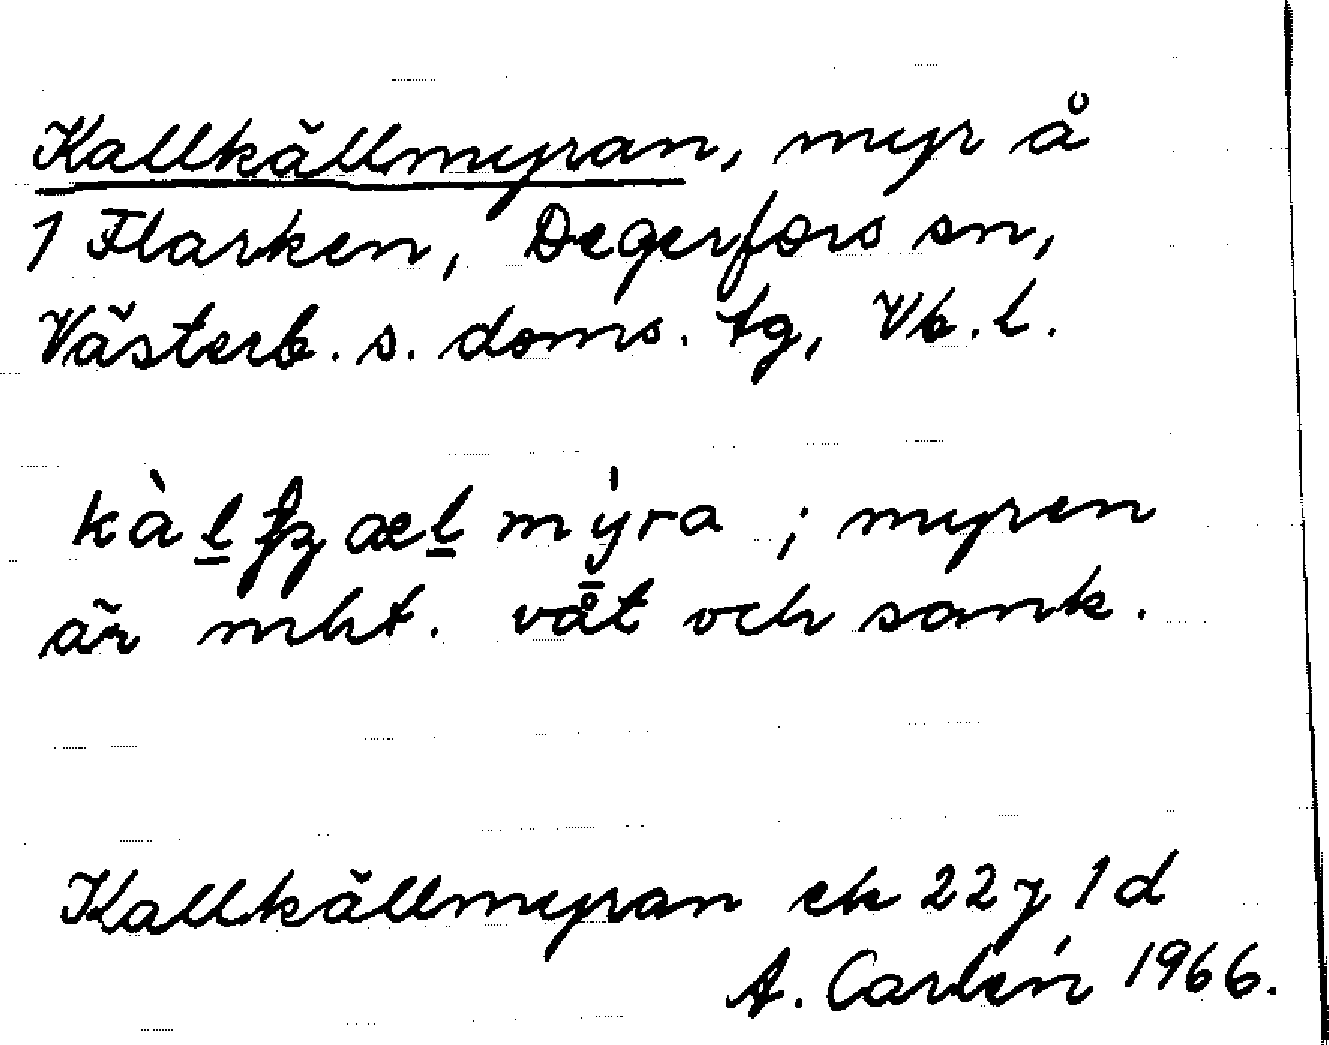 Kallkällmyran, myr å
1 Flarken, Degerfors sn,
Västerb. s. doms. tg, Vb. l.
myra ; myren
är mkt. våt och sank.
Kallkällmyran ek 22 j 1 d
A. Carlén 1966.